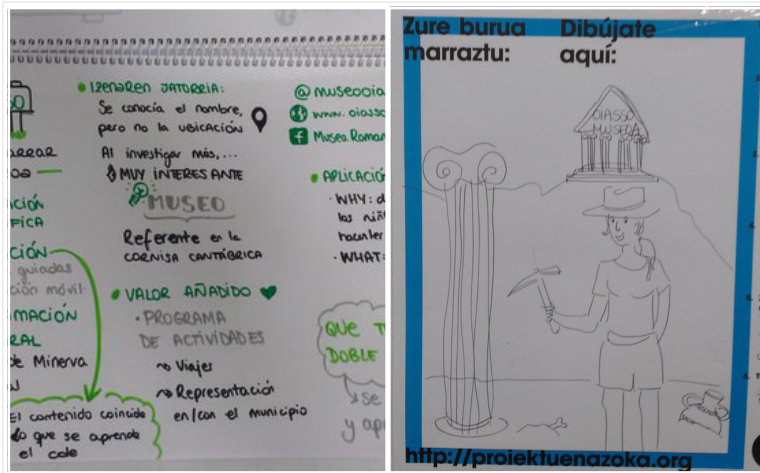 SO
ARRAR
OS
CIÓN
FICA
CIÓN
guiadas
ción móvil.
MACIÓN
RAL
de Minerva
El contenido coincide
lo que se aprende
el cole
IZENAREN JATORRIA:
Se conocía el nombre,
pero no la UBICACIÓN
Al investigar más,...
MUY INTERESANTE
MUSEO
Referente en la
CORNISA CANTÁBRICA
VALOR AÑADIDO
• PROGRAMA
DE ACTIVIDADES
Viajes
Representación
en/con el municipio
@ museooia
www. oiasso
Museo Roman
APLICACIÓ
• WHY: d
los niñ
• WHAT:
QUE T
DOBLE
se
y apr
Zure burua
marraztu:
Dibújate
aquí:
OIASSO
MUSEOA
http://proiektuenazoka.org